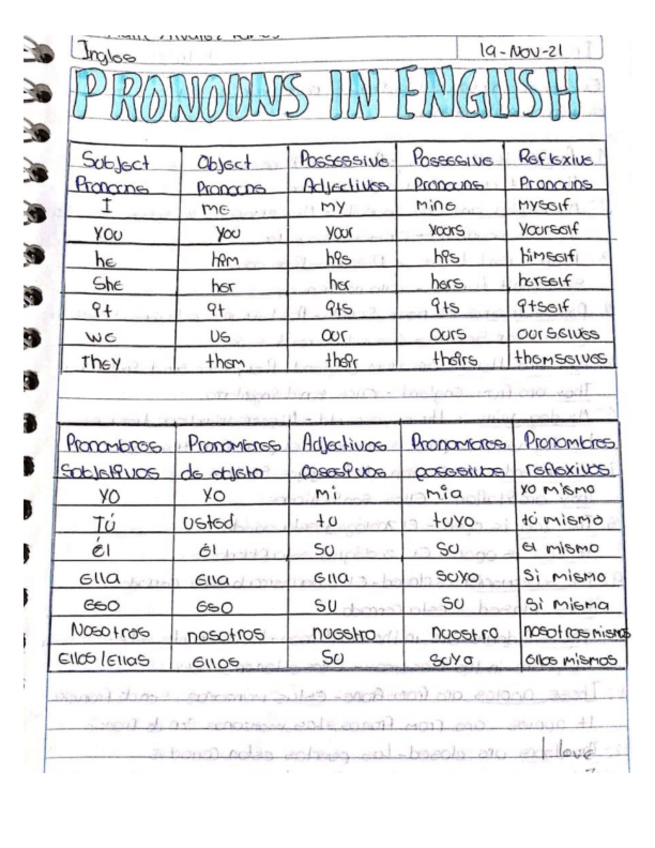 Ingles 19-Nov-21
PRONOUNS IN ENGLISH
Subject Object Possessive Possesive Reflexive
Pronouns Pronouns Adjectives Pronouns Pronouns
I me my mine myself
you you your yours yourself
he him his his himself
She her her hers herself
it it its its itself
we us our ours ourselves
They them their theirs themselves
Pronombres Pronombres Adjectivos Pronombres Pronombres
Subjetivos de objeto posesivos posesivos reflexivos
yo yo mi mia yo mismo
Tú usted tu tuyo tú mismo
él él su su el mismo
Ella Ella Ella suyo Si mismo
eso eso su su Si misma
Nosotros nosotros nuestro nuestro nosotros mismos
Ellos/Ellas Ellos Su suyo Ellos mismos
love